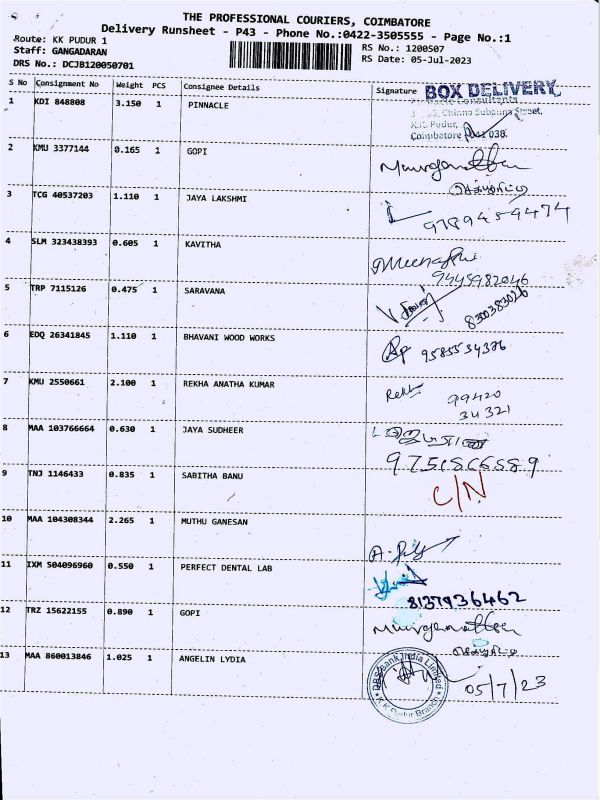 THE PROFESSIONAL COURIERS, COIMBATORE
Delivery Runsheet - P43 - Phone No.:0422-3505555 - Page No.:1
Route: KK PUDUR 1
Staff: GANGADARAN
DRS No.: DCJB120050701
RS No.: 1200507
RS Date: 05-Jul-2023
S No Consignment No Weight PCS Consignee Details Signature
BOX DELIVERY
1 KDI 848808 3.150 1 PINNACLE
Consultants
Chinna Subanna Street,
K.K. Pudur,
Coimbatore 038.
2 KMU 3377144 0.165 1 GOPI
3 TCG 40537203 1.110 1 JAYA LAKSHMI
9789459474
4 SLM 323438393 0.605 1 KAVITHA
9445982046
5 TRP 7115126 0.475 1 SARAVANA
8300383026
6 EDQ 26341845 1.110 1 BHAVANI WOOD WORKS
9585534326
7 KMU 2550661 2.100 1 REKHA ANATHA KUMAR
Rekha 99420
34321
8 MAA 103766664 0.630 1 JAYA SUDHEER
9751866589
9 TNJ 1146433 0.835 1 SABITHA BANU
C/N
10 MAA 104308344 2.265 1 MUTHU GANESAN
11 IXM 504096960 0.550 1 PERFECT DENTAL LAB
8137936462
12 TRZ 15622155 0.890 1 GOPI
13 MAA 860013846 1.025 1 ANGELIN LYDIA
DBS Bank India Limited
K K Pudur Branch
05/7/23